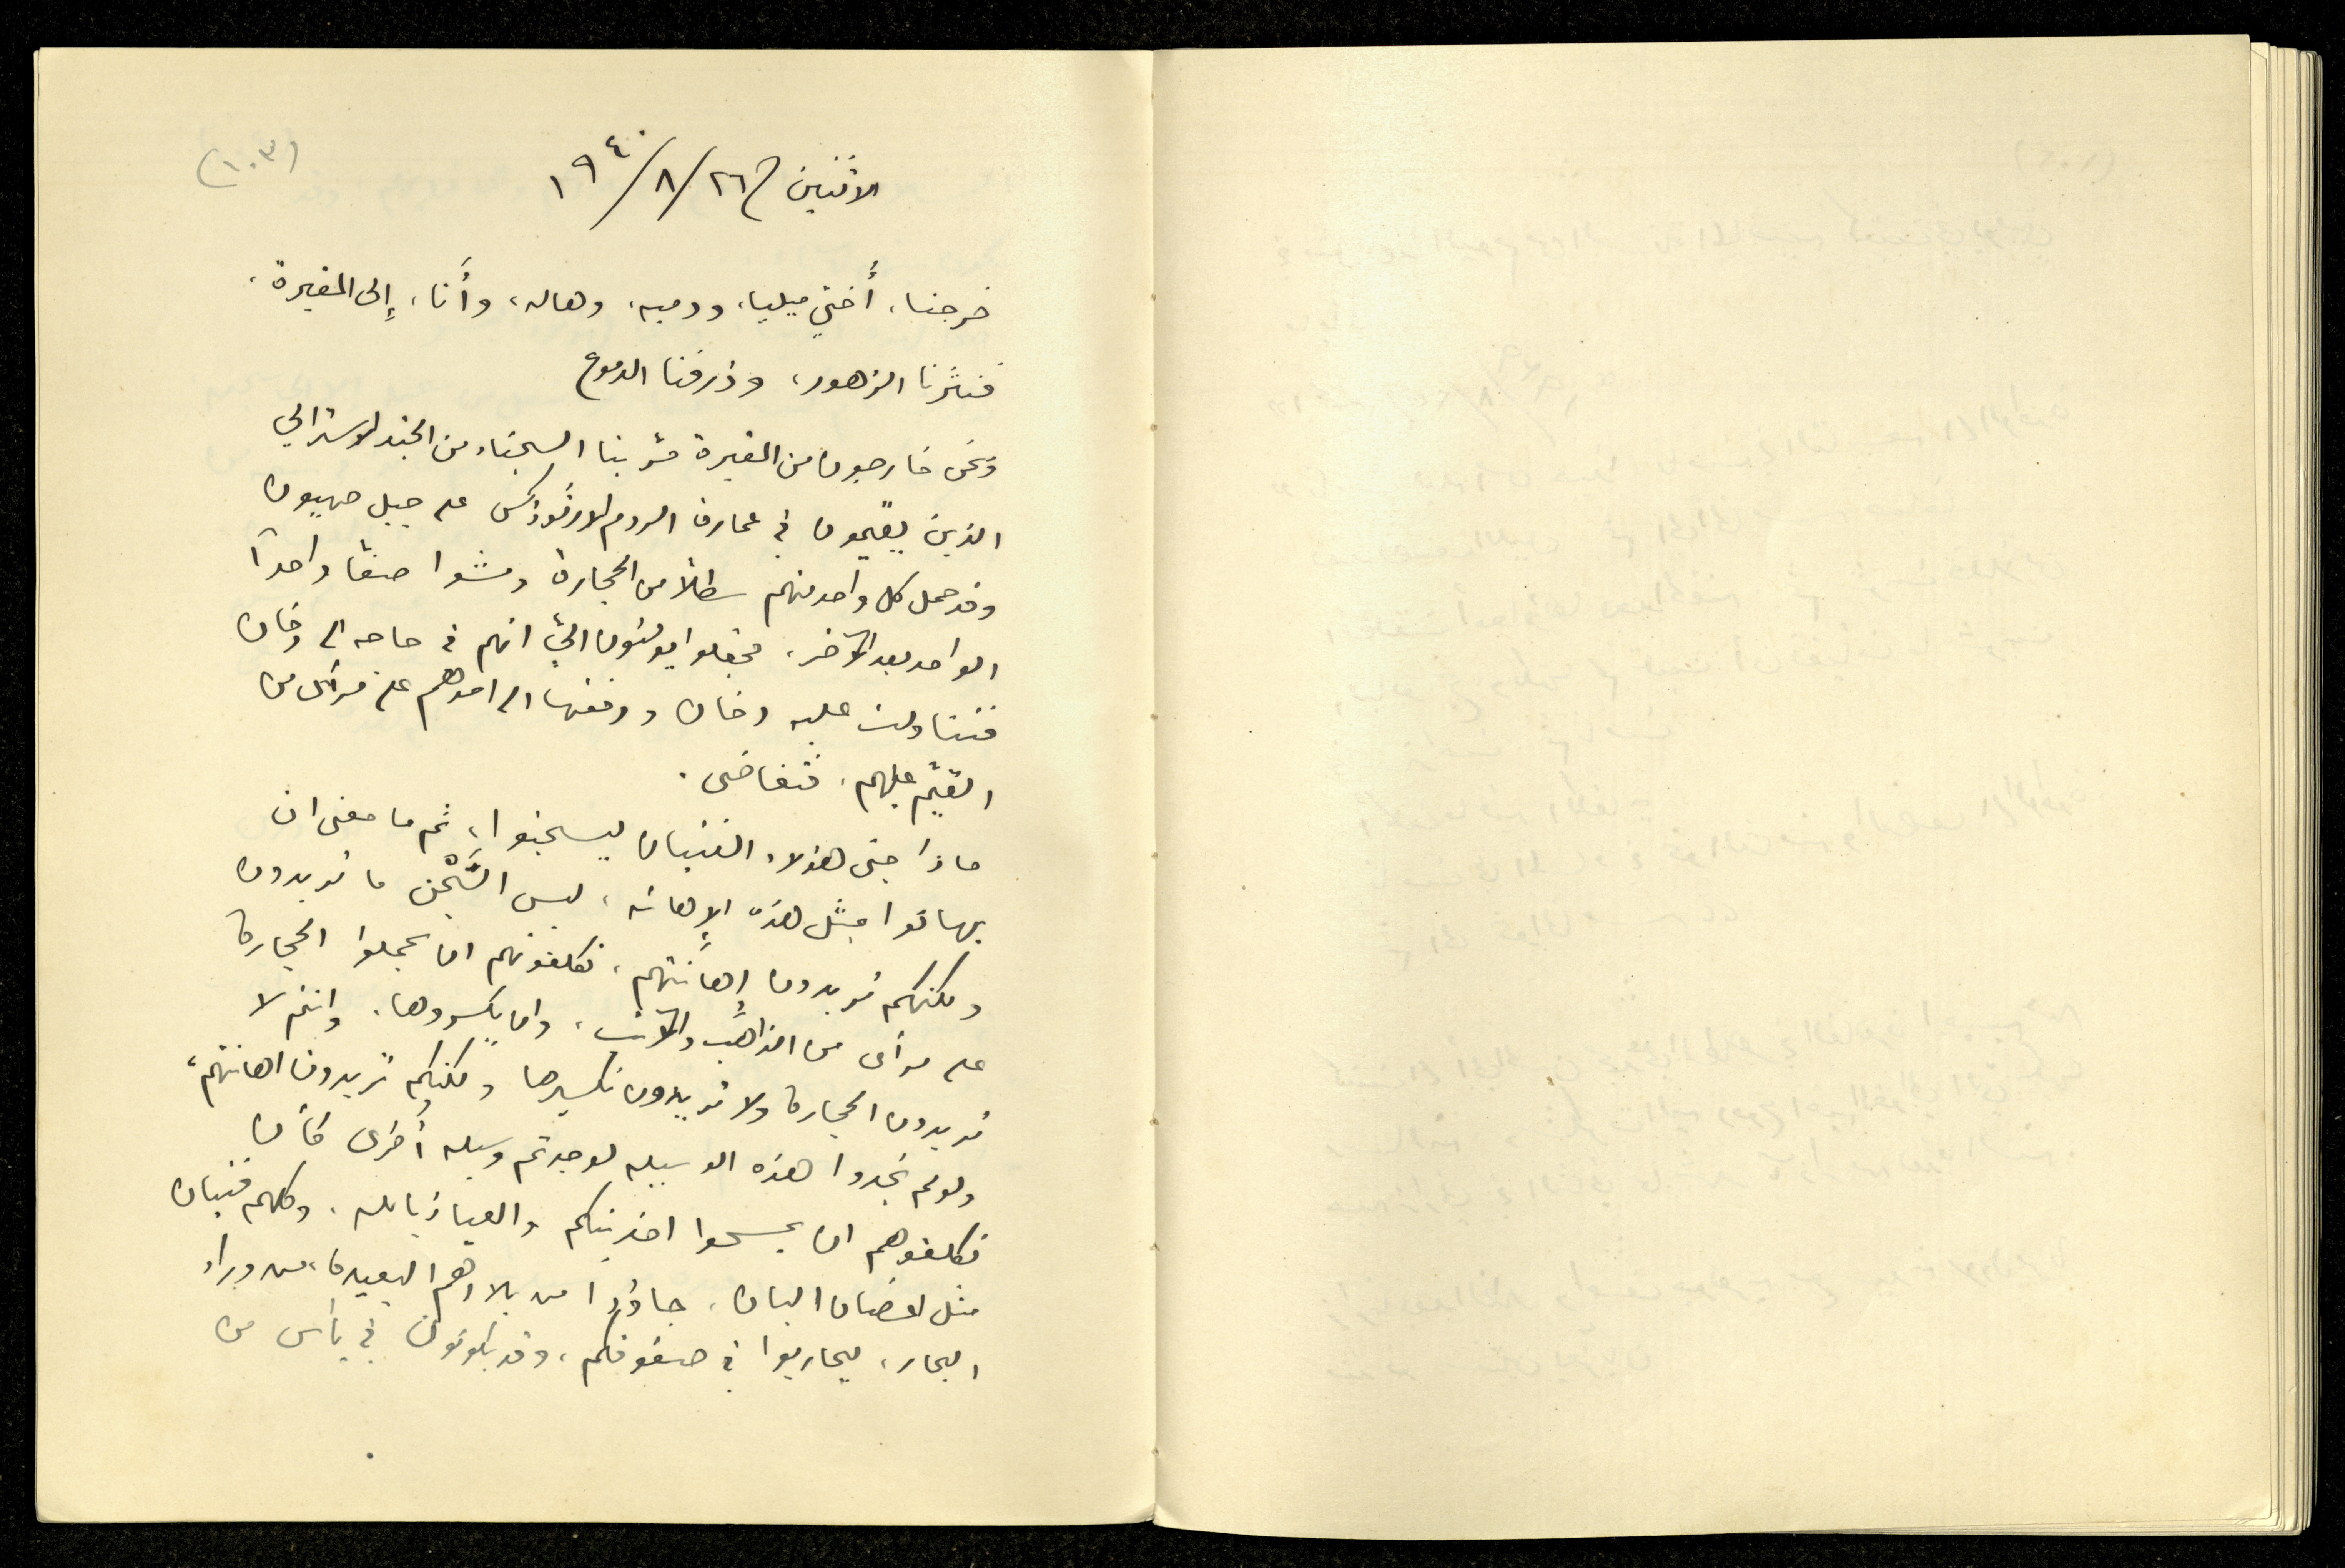 (١٠٣)
الاثنين في ٢٦/٨/١٩٤٠
خرجنا، أُختي ميليا، ودميه، وهاله، وأَنا، إِلى المقبرة،
فنثَرنا الزهور، وذرفنا الدموع
ونحن خارجون من المقبرة مرّ بنا السجناء من الجند الاسترالي
الذين يقيمون في عمارة الروم الاورثوذكس على جبل صهيون
وقد حمل كل واحد منهم سطلاً من الحجارة ومشوا صفا واحداً
الواحد بعد الآخر، فجعلوا يومئون اليّ انهم في حاجه الى دخان
فتناولت علبه دخان ودفعتها الى احدهم على مرأى من
القيّم عليهم، فتغاضى.
ماذا جنى هؤلاء الفتيان ليسجنوا، ثم ما معنى ان
يهانوا مثل هذه الإهانه، ليس السَّجْن ما تريدون
ولكنكم تريدون إِهانَتهم، تكلفونهم ان يحملوا الحجارة
على مرأى من الذاهب والآتي، وان يكسروها، وانتم لا
تريدون الحجارة ولا تريدون تكسيرها ولكنكم تريدون اهانتهم،
ولو لم تجدوا هذه الوسيله لوجدتم وسيله أخرى كأن
تكلفوهم ان يمسحوا احذيتكم والعياذ بالله، وكلهم فتيان
مثل اغصان البان، جاؤوا من بلادهم البعيدة، من وراء
البحار، ليحاربوا في صفوفكم، وقد يكونون في يأس من